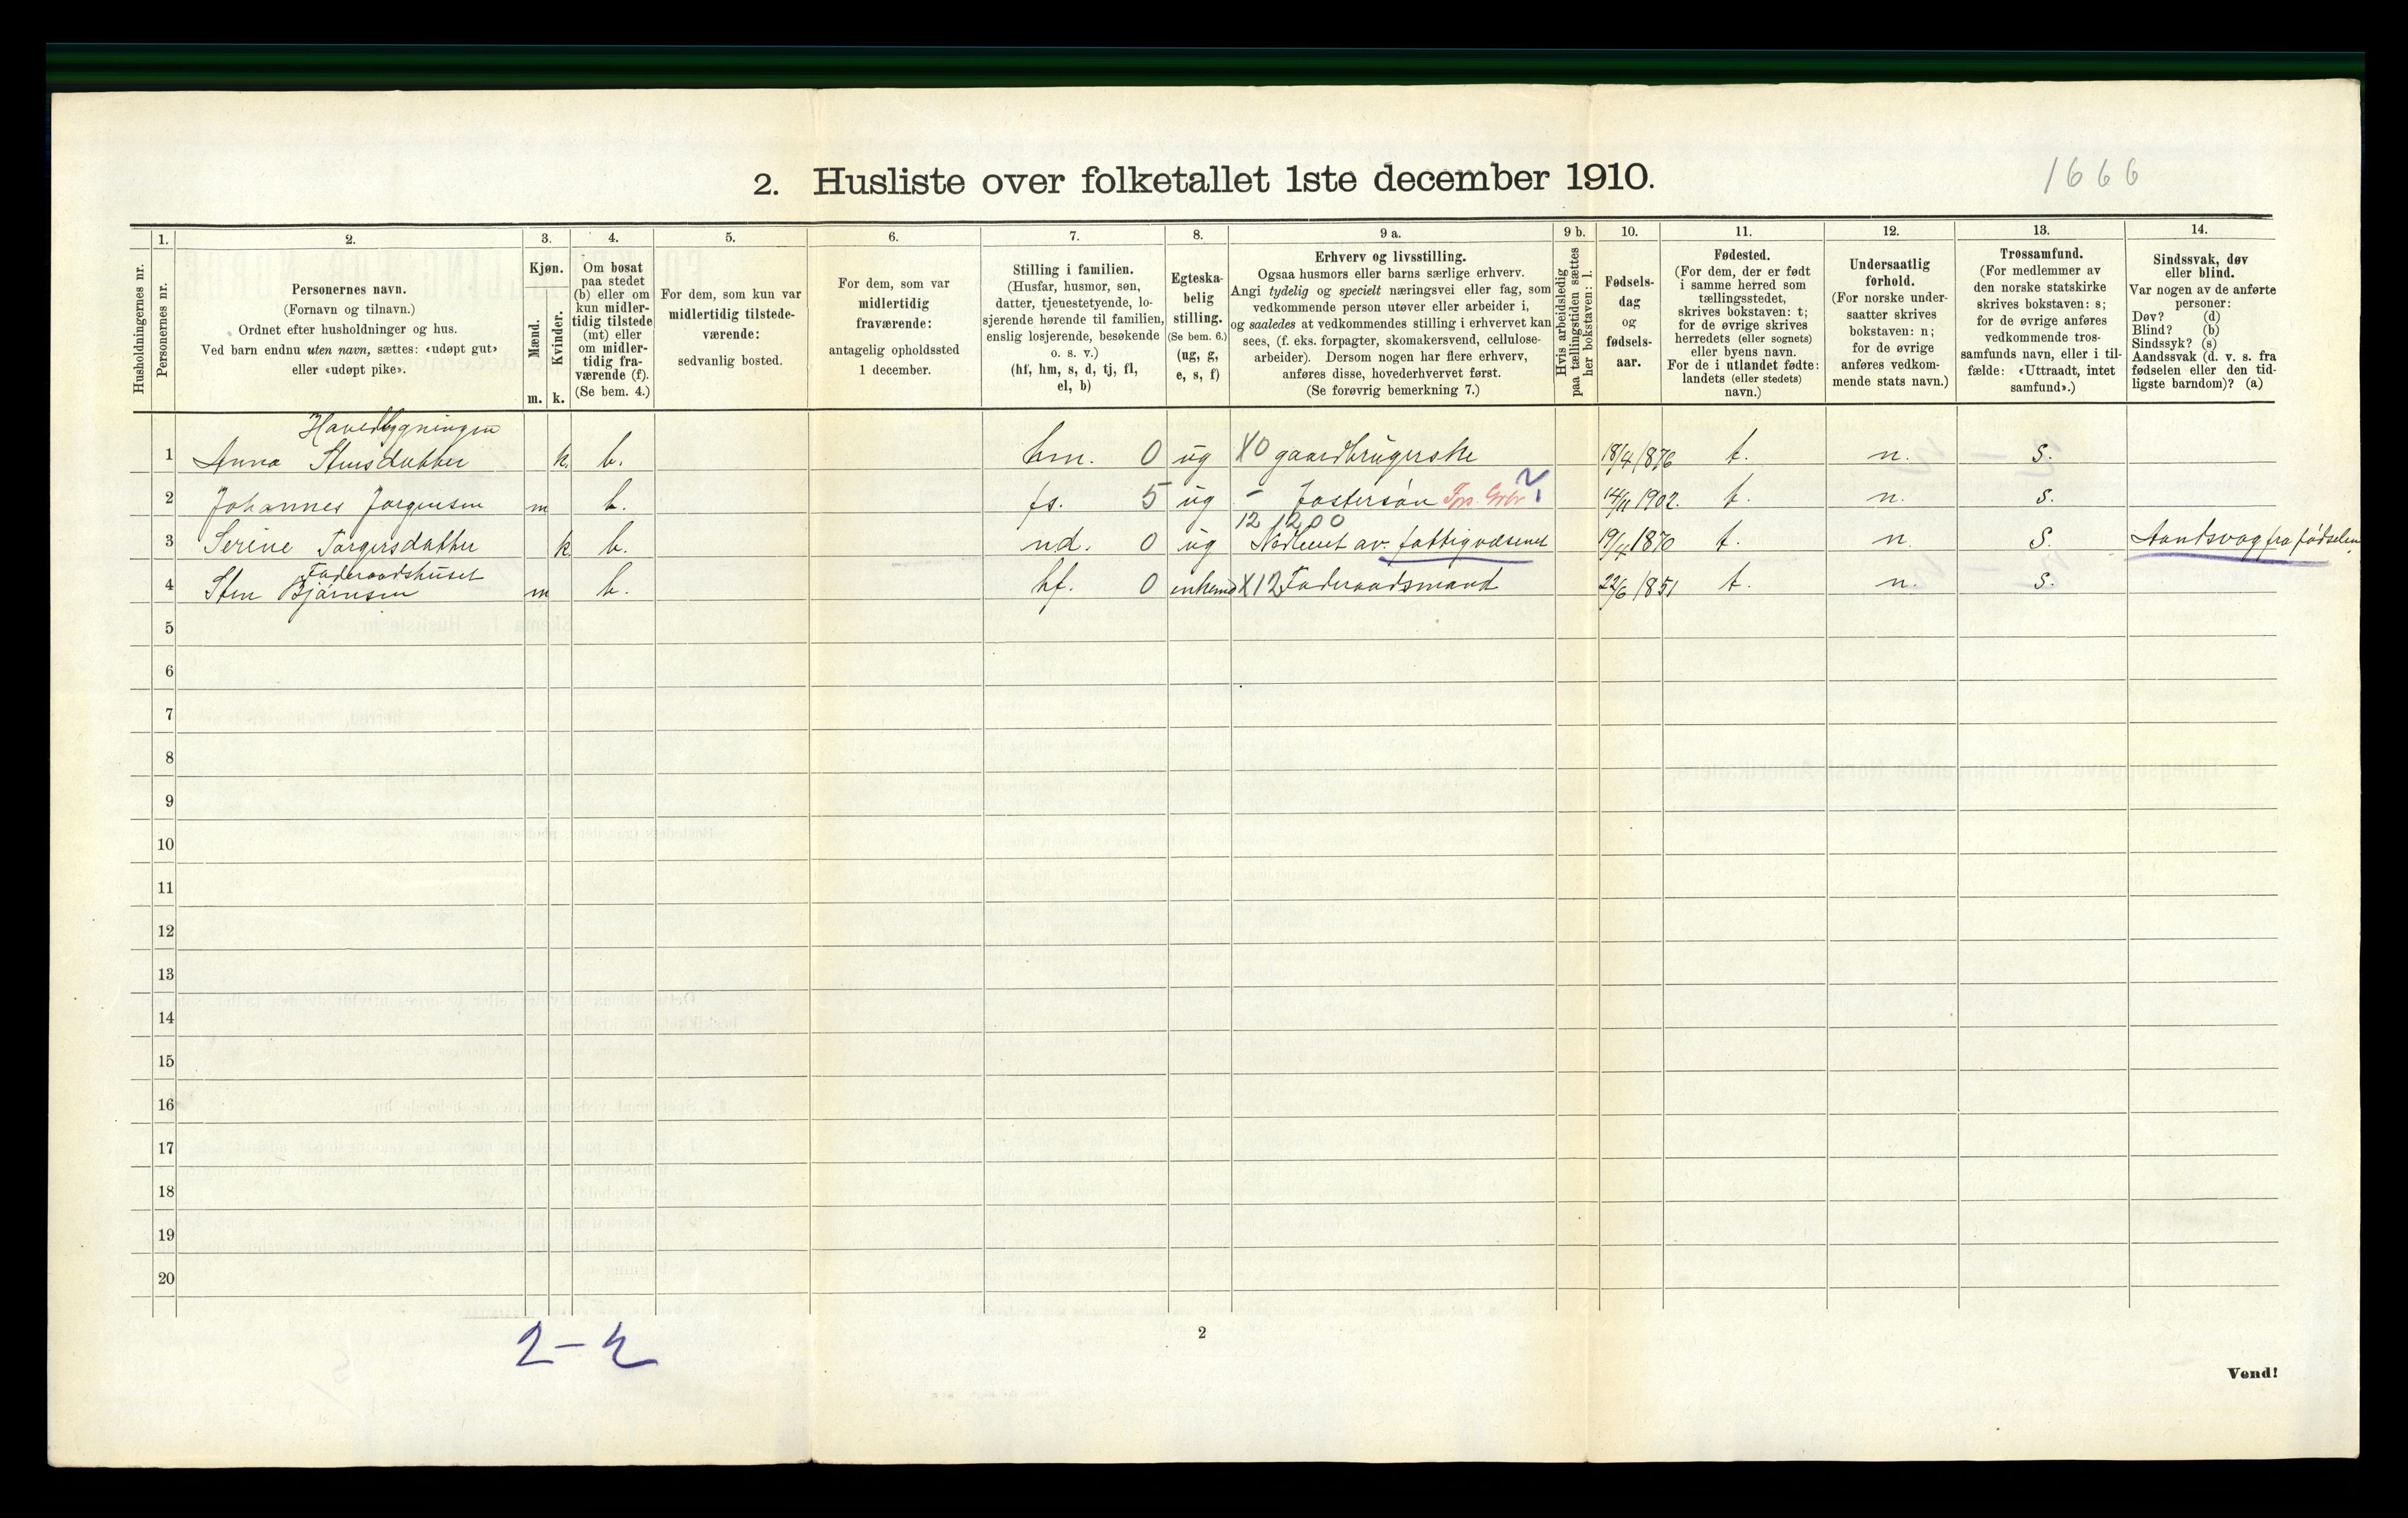 2. Husliste over folketallet 1ste december 1910.
1666
Husholdningernes nr.
1.
Personernes nr.
2.
Personernes navn.
(Fornavn og tilnavn.)
Ordnet efter husholdninger og hus.
Ved barn endnu uten navn, sættes: «udøpt gut»
eller «udøpt pike».
3.
Kjøn.
Mænd.
Kvinder.
m. k.
4.
Om bosat
paa stedet
(b) eller om
kun midler-
tidig tilstede
(mt) eller
om midler-
tidig fra-
værende (f).
(Se bem. 4.)
5.
For dem, som kun var
midlertidig tilstede-
værende:
sedvanlig bosted.
6.
For dem, som var
midlertidig
fraværende:
antagelig opholdssted
1 december.
7.
Stilling i familien.
(Husfar, husmor, søn,
datter, tjenestetyende, lo-
sjerende hørende til familien,
enslig losjerende, besøkende
o. s. v.)
(hf, hm, s, d, tj, fl,
el, b)
8.
Egteska-
belig
stilling.
(Se bem. 6.)
(ug, g,
e, s, f)
9 a.
Erhverv og livsstilling.
Ogsaa husmors eller barns særlige erhverv.
Angi tydelig og specielt næringsvei eller fag, som
vedkommende person utøver eller arbeider i,
og saaledes at vedkommendes stilling i erhvervet kan
sees, (f. eks. forpagter, skomakersvend, cellulose-
arbeider). Dersom nogen har flere erhverv,
anføres disse, hovederhvervet først.
(Se forøvrig bemerkning 7.)
9 b.
Hvis arbeidsledig
paa tællingstiden sættes
her bokstaven: l.
10.
Fødsels-
dag
og
fødsels-
aar.
11.
Fødested.
(For dem, der er født
i samme herred som
tællingsstedet,
skrives bokstaven: t;
for de øvrige skrives
herredets (eller sognets)
eller byens navn.
For de i utlandet fødte:
landets (eller stedets)
navn.)
12.
Undersaatlig
forhold.
(For norske under-
saatter skrives
bokstaven: n;
for de øvrige
anføres vedkom-
mende stats navn.)
13.
Trossamfund.
(For medlemmer av
den norske statskirke
skrives bokstaven: s;
for de øvrige anføres
vedkommende tros-
samfunds navn, eller i til-
fælde: «Uttraadt, intet
samfund».)
14.
Sindssvak, døv
eller blind.
Var nogen av de anførte
personer:
Døv? (d)
Blind? (b)
Sindssyk? (s)
Aandssvak (d. v. s. fra
fødselen eller den tid-
ligste barndom)? (a)
Hovedbygningen
1 Anna Stensdatter k. b. hm. 0 ug X0 gaardbrugerske 18/4 1876 t. n. s.
2 Johannes Jørgensen m b. fs. 5 ug - fostersøn 14/11 1902. t. n. s.
12 1200
3 Serine Torgersdatter k b. nd. 0 ug Nedlemt av fattigvæsenet 19/4 1870 t. n. s. Aandsvag fra fødselen
Føderaadshuset
4 Sten Bjørnsen m b. hf. 0 enkemd X12 Føderaadsmand 22/6 1851 t. n. s.
5
6
7
8
9
10
11
12
13
14
15
16
17
18
19
20
2-2
2
Vend!